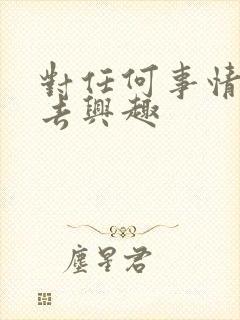 對任何事情
去興趣
塵星君